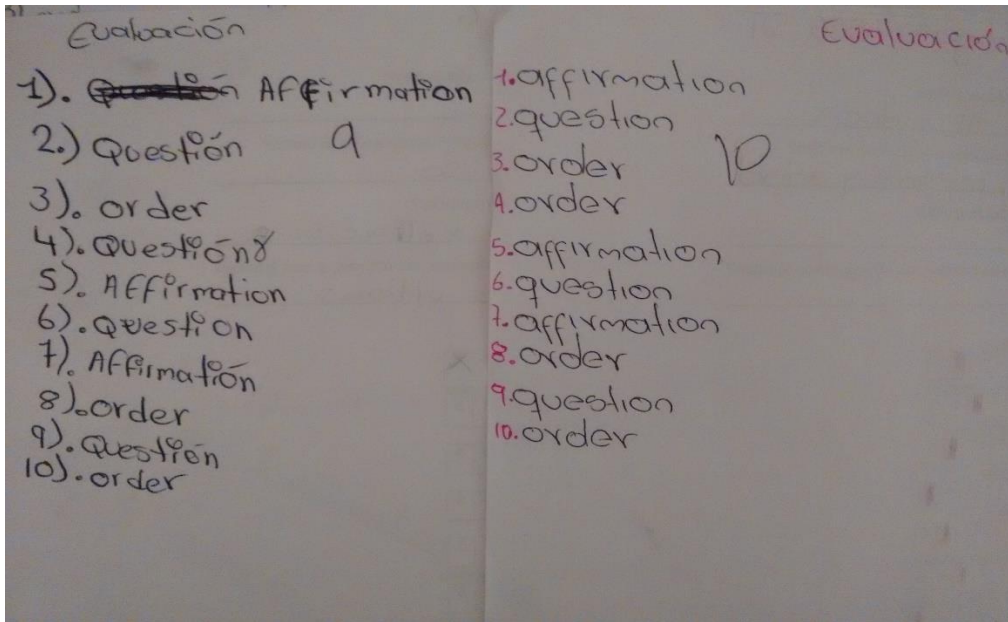 Evaluación
1). Affirmation
2.) Questión 9
3). order
4). Questión
5). Affirmation
6). Question
7). Affirmatión
8). order
9). Questión
10). order
Evaluación
1. affirmation
2. question
3. order 10
4. order
5. affirmation
6. question
7. affirmation
8. order
9. question
10. order